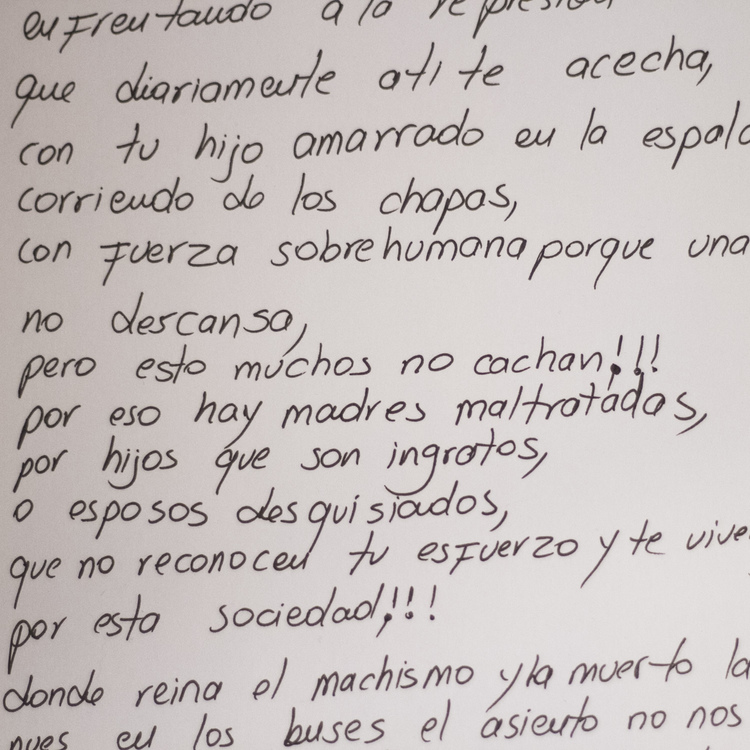 enfrentando a la represion
que diariamente a ti te acecha,
con tu hijo amarrado en la espald
corriendo de los chapas,
con fuerza sobrehumana porque una
no descansa,
pero esto muchos no cachan!!!
por eso hay madres maltratadas,
por hijos que son ingratos,
o esposos desquisiados,
que no reconocen tu esfuerzo y te vive
por esta sociedad,!!!
donde reina el machismo y la muerto la
pues en los buses el asiento no nos